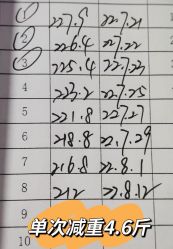 ① 227.9 22.7.21
② 226.4 22.7.22
③ 225.4 22.7.23
4 223.2 22.7.25
5 221.8 22.7.27
6 218.8 22.7.29
7 216.8 22.8.1
8 212 22.8.12
9
10
单次减重4.6斤